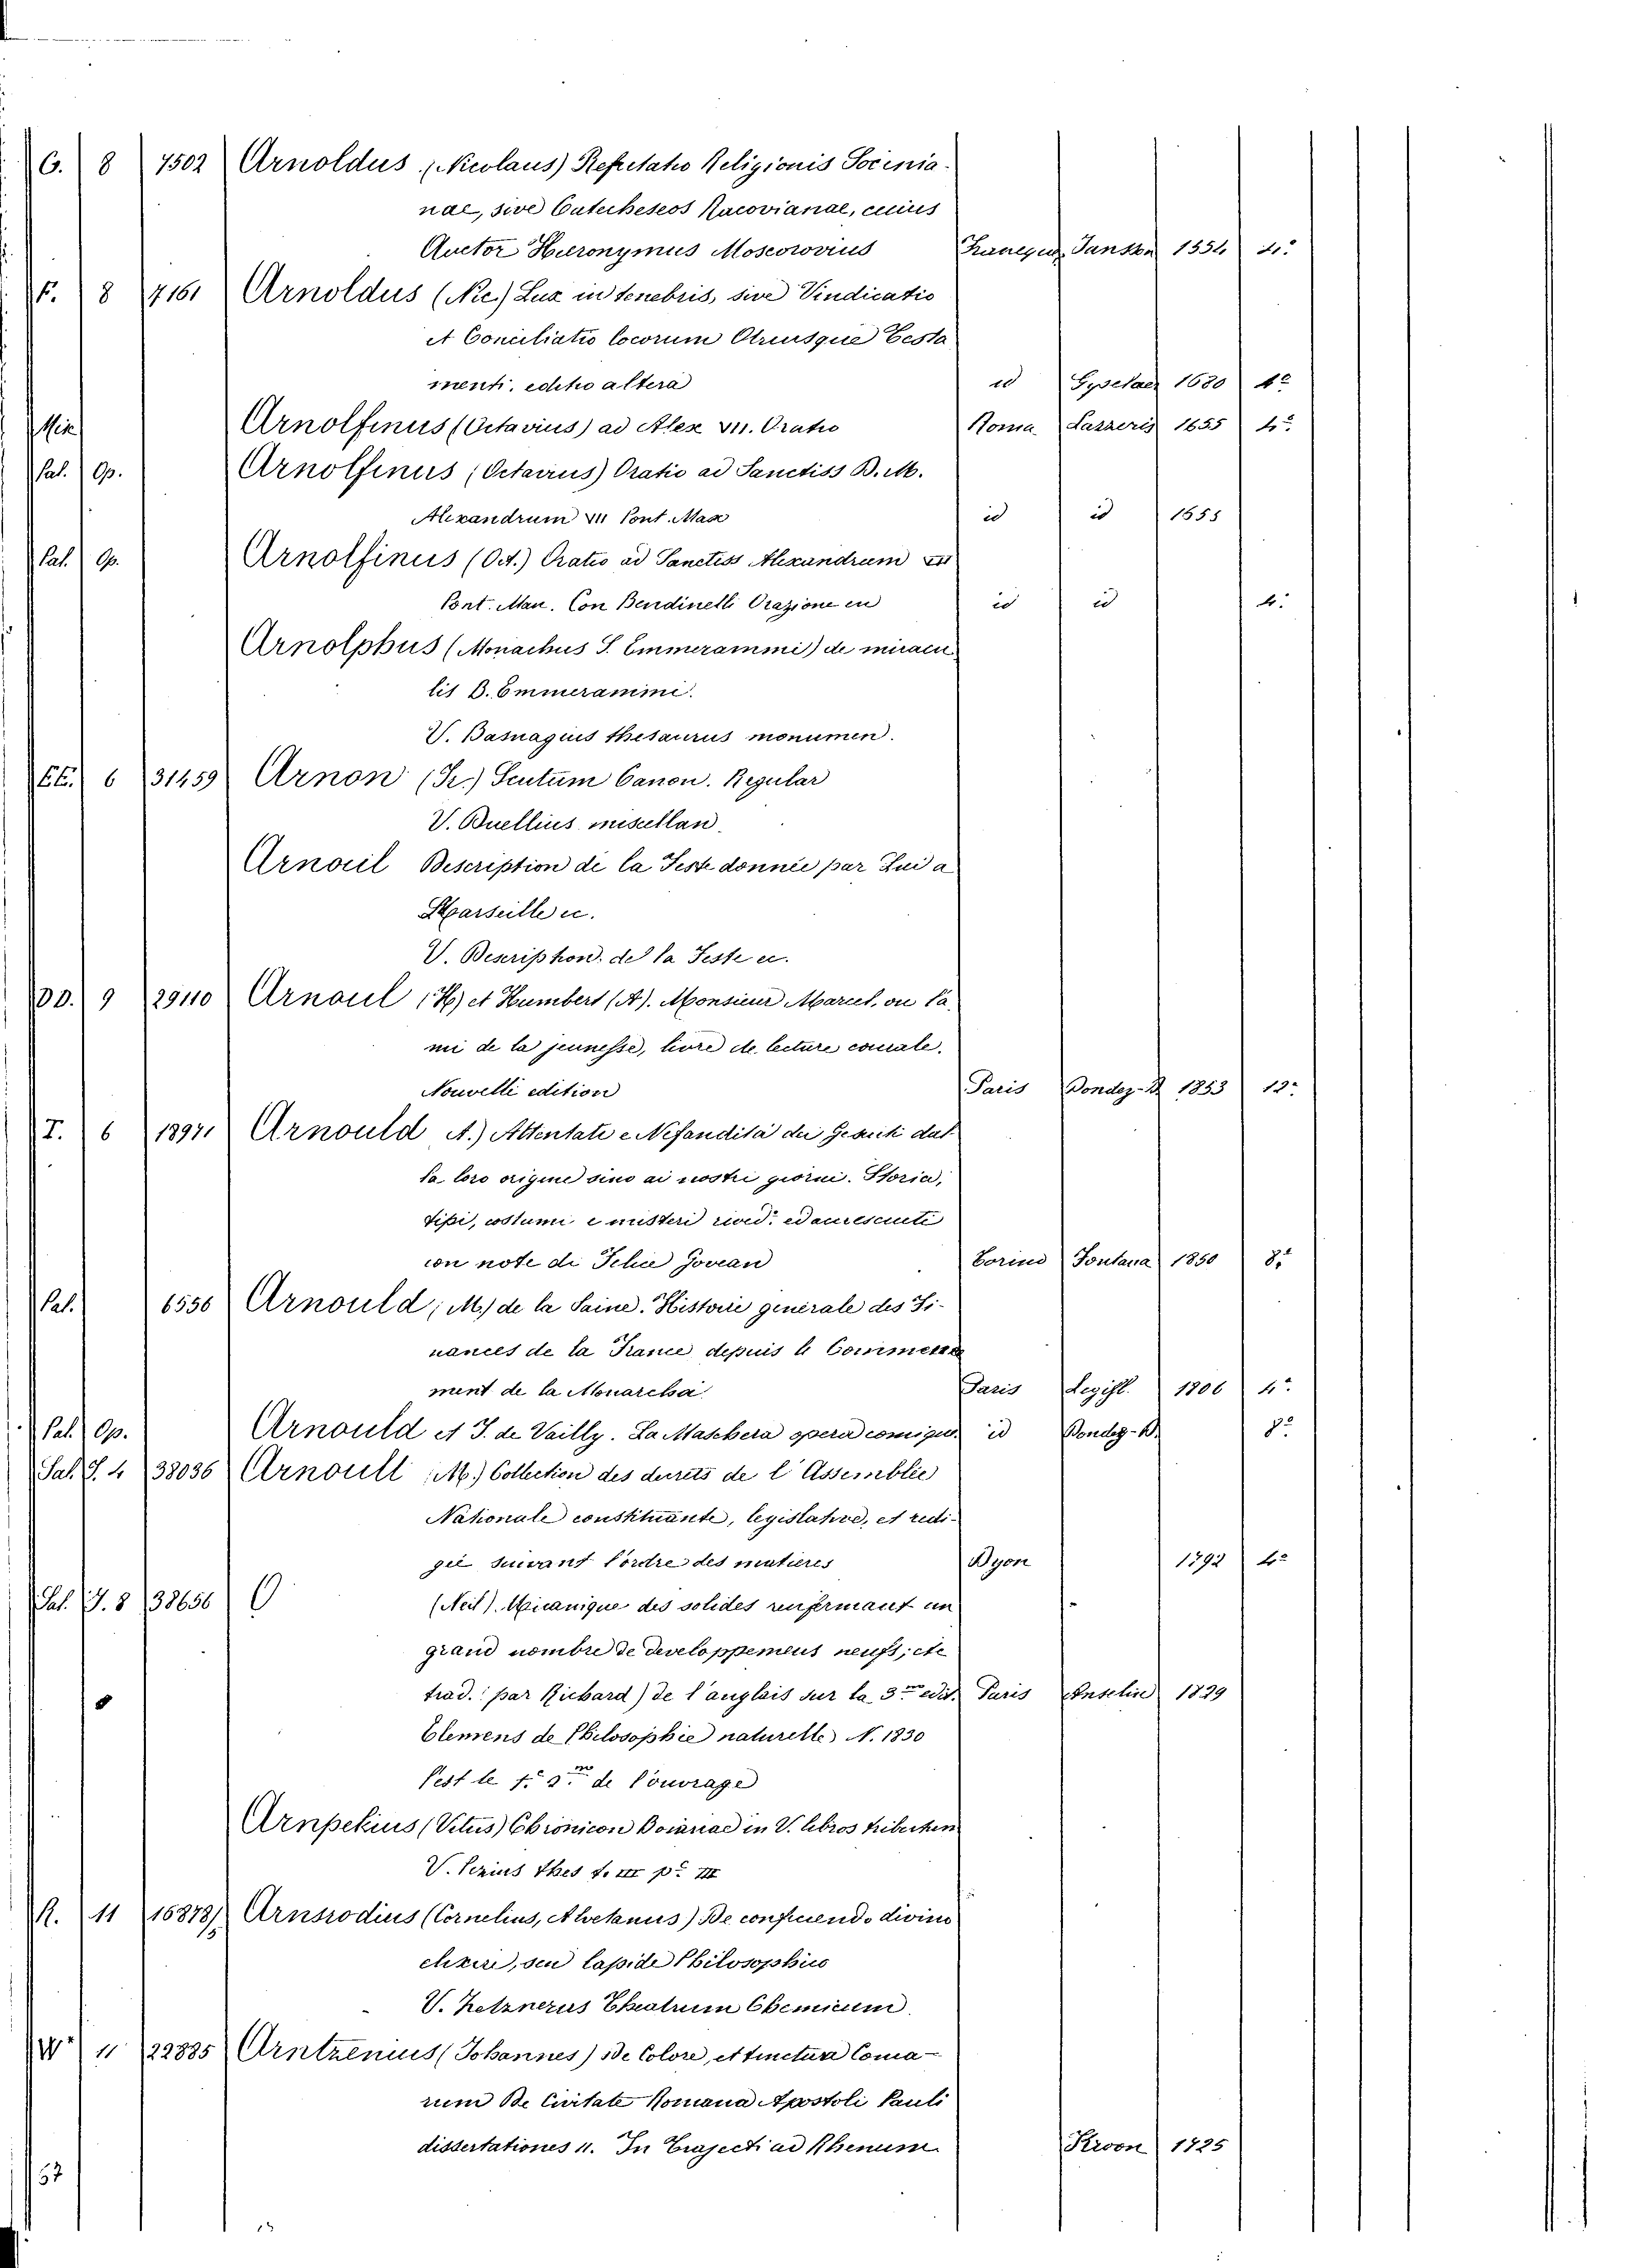 G. 8 7502 Arnoldus (Nicolaus) Refutatio Religionis Socinia-
nae, sive Catecheseos Racovianae, cuius
Auctor Hieronymus Moscorovius Janson 1654 4.o
F. 8 7161 Arnoldus (Nic.) Lux in tenebris, sive Vindicatio
et Conciliatio locorum Utriusque Testa
menti, editio altera id Gyselaer 1680 4.o
Mis Arnolfinus (Octavius) ad Alex VII. Oratio Roma Lazzeris 1655 4.o
Pal. Op. Arnolfinus (Octavius) Oratio ad Sanctiss B. M.
Alexandrum VII Pont. Max id id 1655
Pal. Op. Arnolfinus (Oct.) Oratio ad Sanctiss Alexandrum VII
Pont. Max. Con Bendinelli Orazione in id id 4.o
Arnolphus (Monachus S. Emmerammi) de miracu
lis B. Emmerammi.
V. Basnagius thesaurus monumen.
EE. 6 31459 Arnon (Fr.) Scutum Canon. Regular
V. Duellius miscellan.
Arnoul Description de la Feste donnée par Lui a
Marseille ec.
V. Description de la Feste ec.
DD. 9 29110 Arnoul (H) et Humbert (A). Monsieur Marcel, ou l'a
mi de la jeunesse, livre de lecture courale.
Nouvelle edition Paris Dondez-D 1853 12.o
T. 6 18971 Arnould A.) Attentati e Nefandità dei Gesuiti dal
la loro origine sino ai nostri giorni. Storia,
tipi, costumi e misteri ed accresciuti
con note di Felice Govean Torino Fontana 1850 8.o
Pal. 6556 Arnould (M.) de la Seine. Histoire generale des Fi-
nances de la France depuis le Commence
ment de la Monarchia Paris Legisl. 1806 4.o
Pal. Op. Arnould et J. de Vailly. La Maschera opera comique id Dondey-D. 8.o
Sal. J. 4 38036 Arnoult M.) Collection des decrets de l'Assemblée
Nationale constituante, legislative, et redi-
gée suivant l'ordre des matieres Dyon 1792 4.o
Sal. J. 8 38656 (Neil). Mécanique des solides renfermant un
grand nombre de developpemens neufs, etc
trad. par Richard) de l'anglais sur la 3.me edit. Paris Anselin 1829
Elemens de Philosophie naturelle N. 1830
C'est le t. 3.me de l'ouvrage
Arnpekius (Vitus) Chronicon Boiariae in V. libros
V. Pezius thes t. III p. III
R. 11 16878/5 Arnsrodius (Cornelius, Alvetanus) De conficiendo divino
elixire, seu lapide Philosophico
V. Zetznerus Theatrum Chemicum
W 11 22885 Arntzenius (Johannes) De Colore, et tinctura Coma-
rum De Civitate Romana Apostoli Pauli
dissertationes II. In Trajecti ad Rhenum Kroon 1725
57